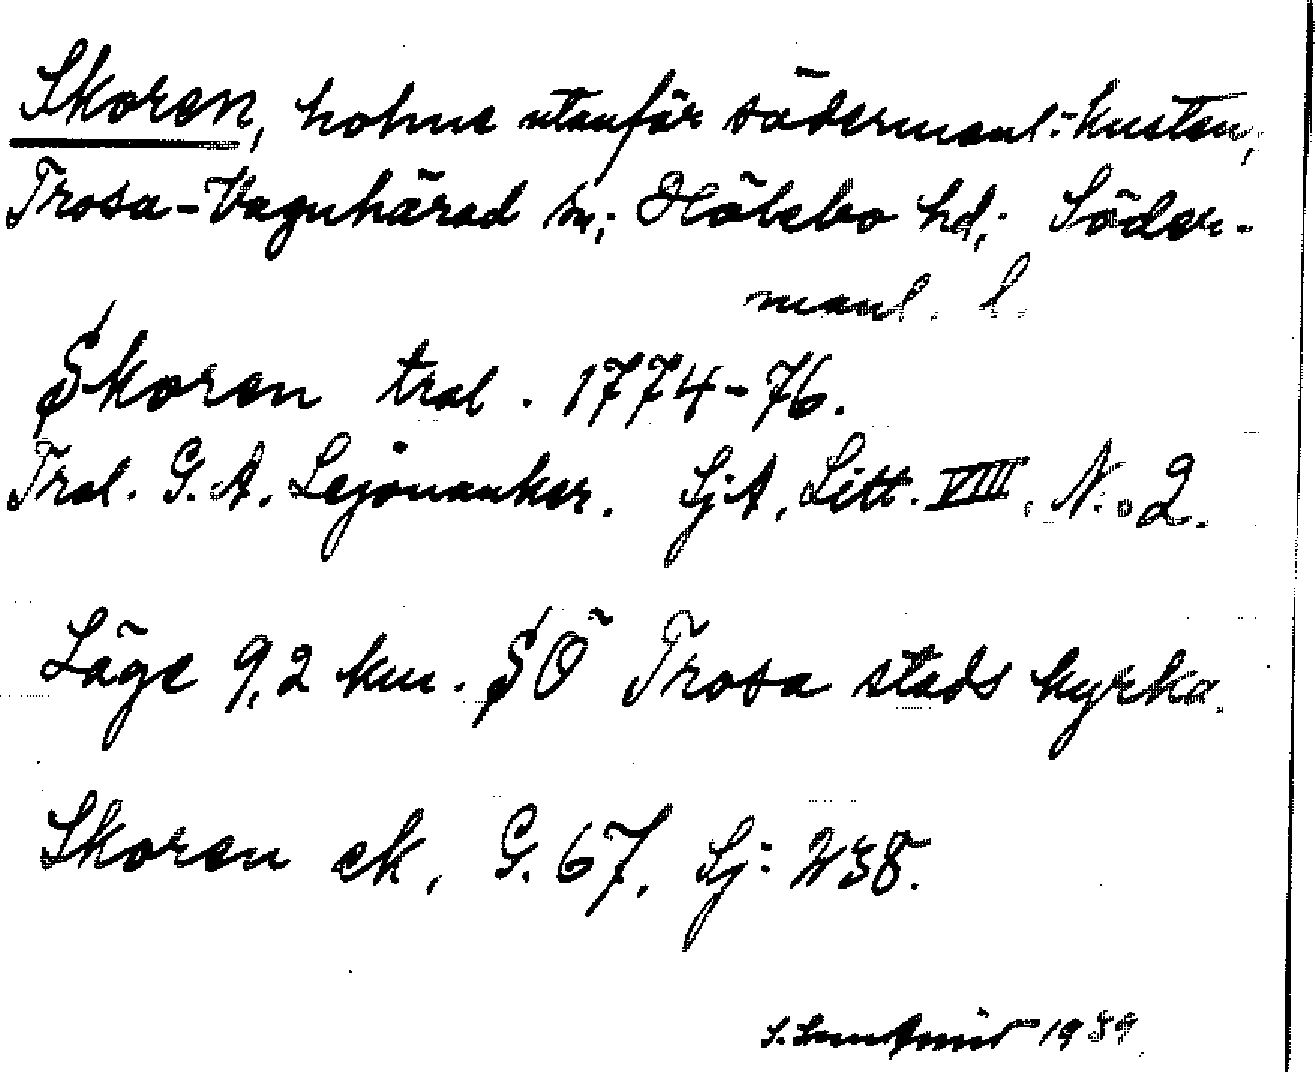 Skoren, holme utanför södermanl. kusten,
Trosa-Vagnhärad sn; Hölebo hd; Söder-
manl. l.
Skoren tral. 1774-76.
Tral. G. A. Lejonanker. SjA, Litt. VIII, N:o 2.
Läge 9,2 km. SÖ Trosa stads kyrka.
Skoren ek, G. 67, Sj: 238.
1939